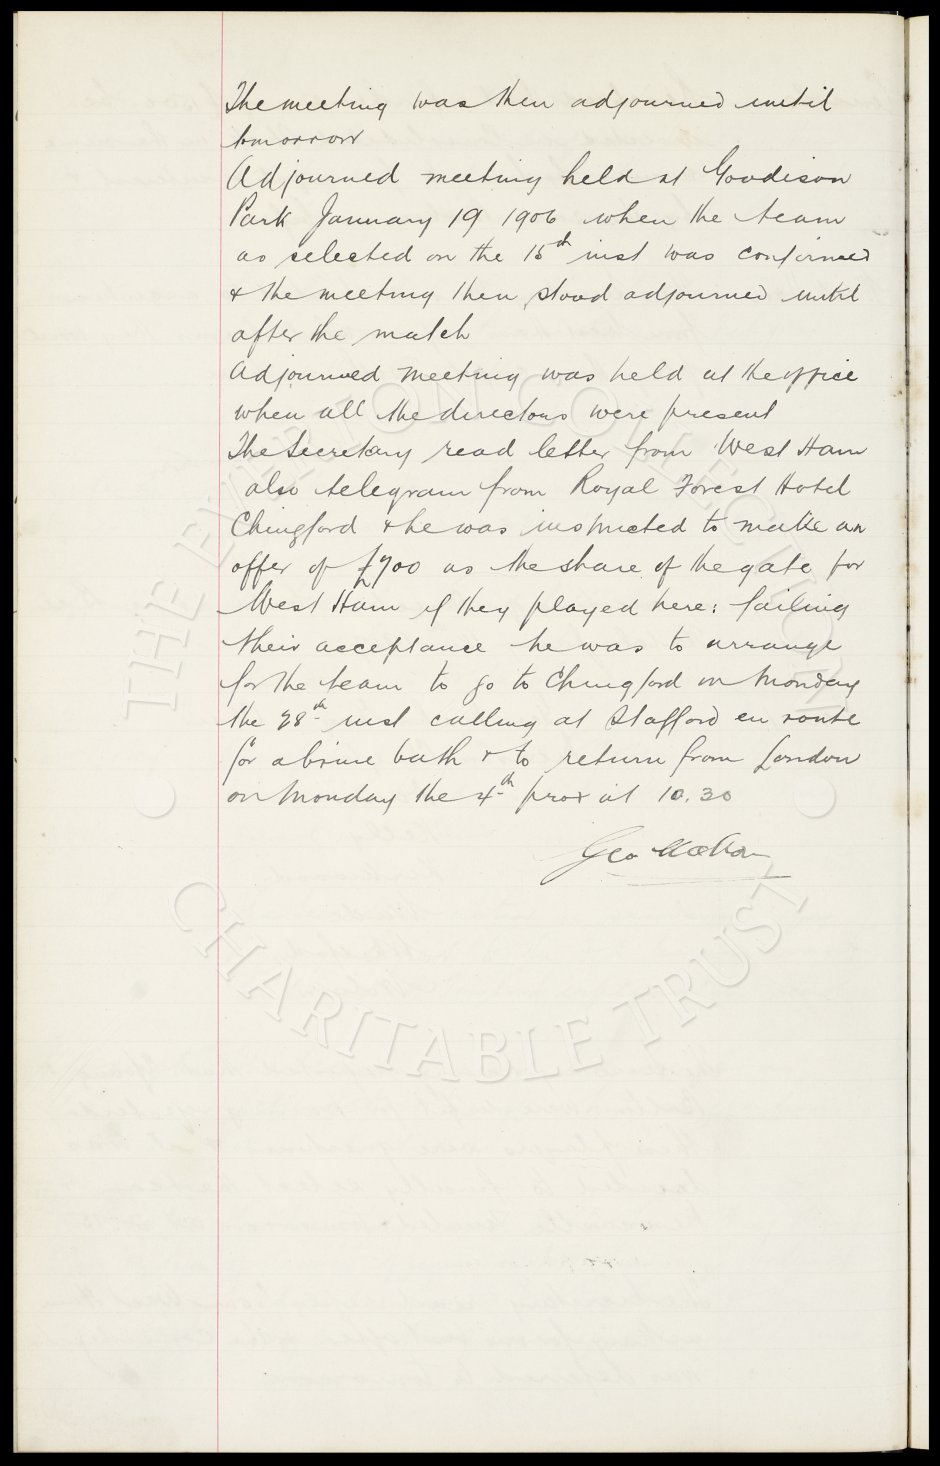 The meeting was then adjourned until
tomorrow
Adjourned meeting held at Goodison
Park January 19 1906 when the team
as selected on the 15th inst was confirmed
& the meeting then stood adjourned until
after the match
Adjourned meeting was held at the office
when all the directors were present
The Secretary read letter from West Ham
also telegram from Royal Forest Hotel
Chingford & he was instructed to make an
offer of £700 as the share of the gate for
West Ham if they played here: failing
their acceptance he was to arrange
for the team to go to Chingford on Monday
the 28th inst calling at Stafford en route
for a brine bath & to return from London
on Monday the 4th prox at 10.30
Geo Mahon
THE EVERTON COLLECTION
CHARITABLE TRUST